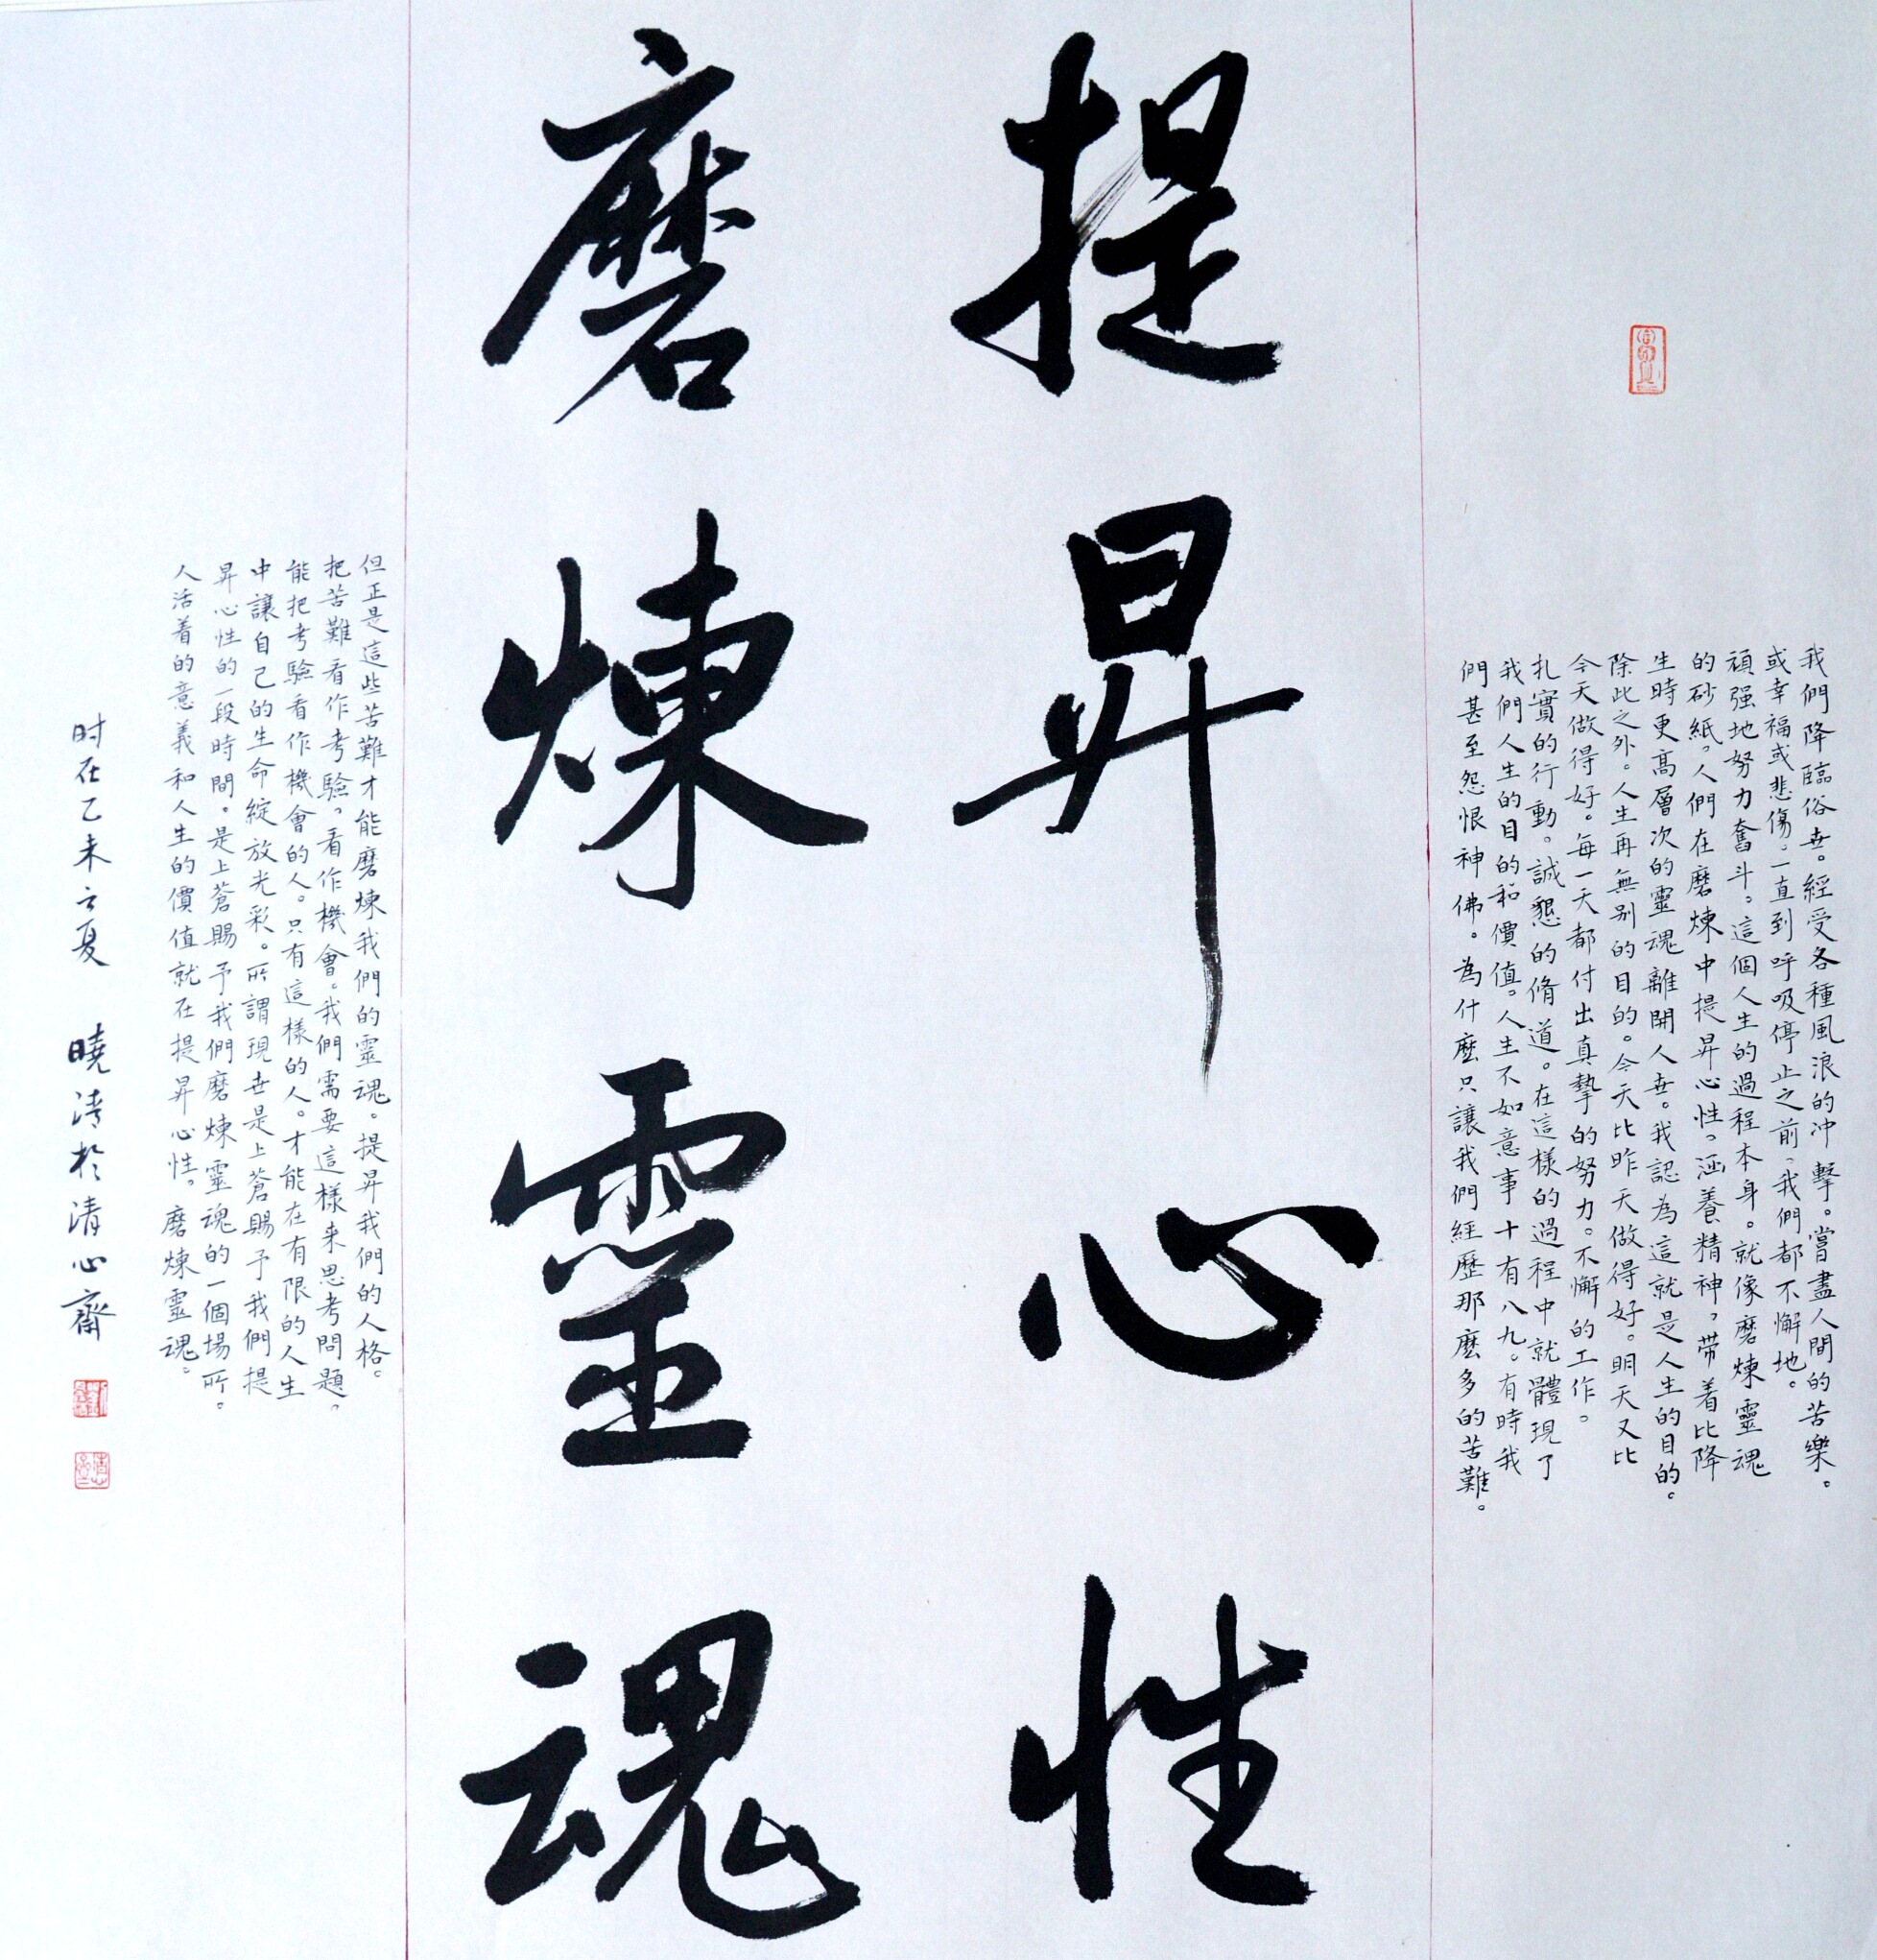 我們降臨俗世。經受各種風浪的沖擊。嘗盡人間的苦樂。
或幸福或悲傷。一直到呼吸停止之前，我們都不懈地。
頑强地努力奮斗。這個人生的過程本身。就像磨煉靈魂
的砂紙。人們在磨煉中提昇心性，涵養精神，带着比降
生時更高層次的靈魂離開人世。我認為這就是人生的目的。
除此之外。人生再無别的目的。今天比昨天做得好。明天又比
今天做得好。每一天都付出真摯的努力。不懈的工作。
扎實的行動。誠懇的脩道。在這樣的過程中就體現了
我們人生的目的和價值。人生不如意事十有八九。有時我
們甚至怨恨神佛。為什麼只讓我們經歷那麼多的苦難。
提昇心性
磨煉靈魂
但正是這些苦難才能磨煉我們的靈魂。提昇我們的人格。
把苦難看作考驗。看作機會。我們需要這樣来思考問題。
能把考驗看作機會的人。只有這樣的人。才能在有限的人生
中讓自己的生命綻放光彩。所謂現世是上蒼賜予我們提
昇心性的一段時間。是上蒼賜予我們磨煉靈魂的一個場所。
人活着的意義和人生的價值就在提昇心性。磨煉靈魂。
时在乙未之夏 曉清於清心齋